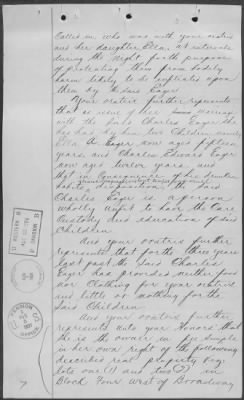 called in, who was with your oratrix
and her daughter Ella at intervals
during the night for the purpose
of protecting them from bodily
harm likely to be inflicted upon
them by the said Eager
Your oratrix further represents
that as issue of her marriage
with the said Charles Eager she
has had by him two children namely
Ella A. Eager now aged fifteen
years and Charles Edward Eager
now aged twelve years, and
that in consequence of his drunken
habits disposition the said
Charles Eager is a person
wholly unfit to have the care
custody and education of said
children
And your oratrix further
represents that for the three years
last past the said Charles
Eager has provided neither food
nor clothing for your oratrix
and little or nothing for the
said children
And your oratrix further
represents unto your Honors that
she is the owner in fee simple
in her own right of the following
described real property viz
lots one (1) and two (2) in
Block Four West of Broadway
7